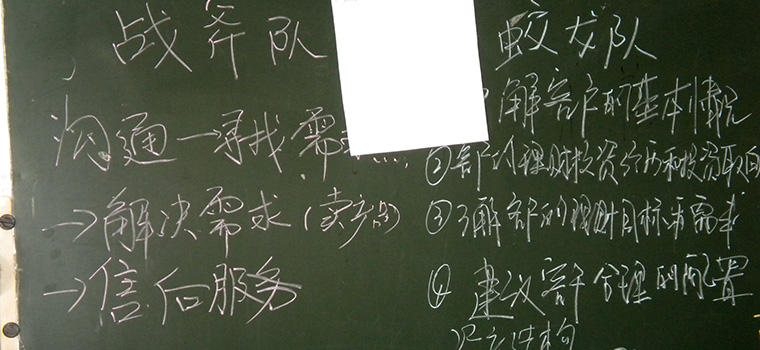 战斧队
沟通→寻找需
→解决需求(卖产品)
→售后服务
蛟龙队
了解客户的基本情况
②客户的理财投资经历和投资取向
③了解客户的理财目标与需求
④建议客户合理的配置